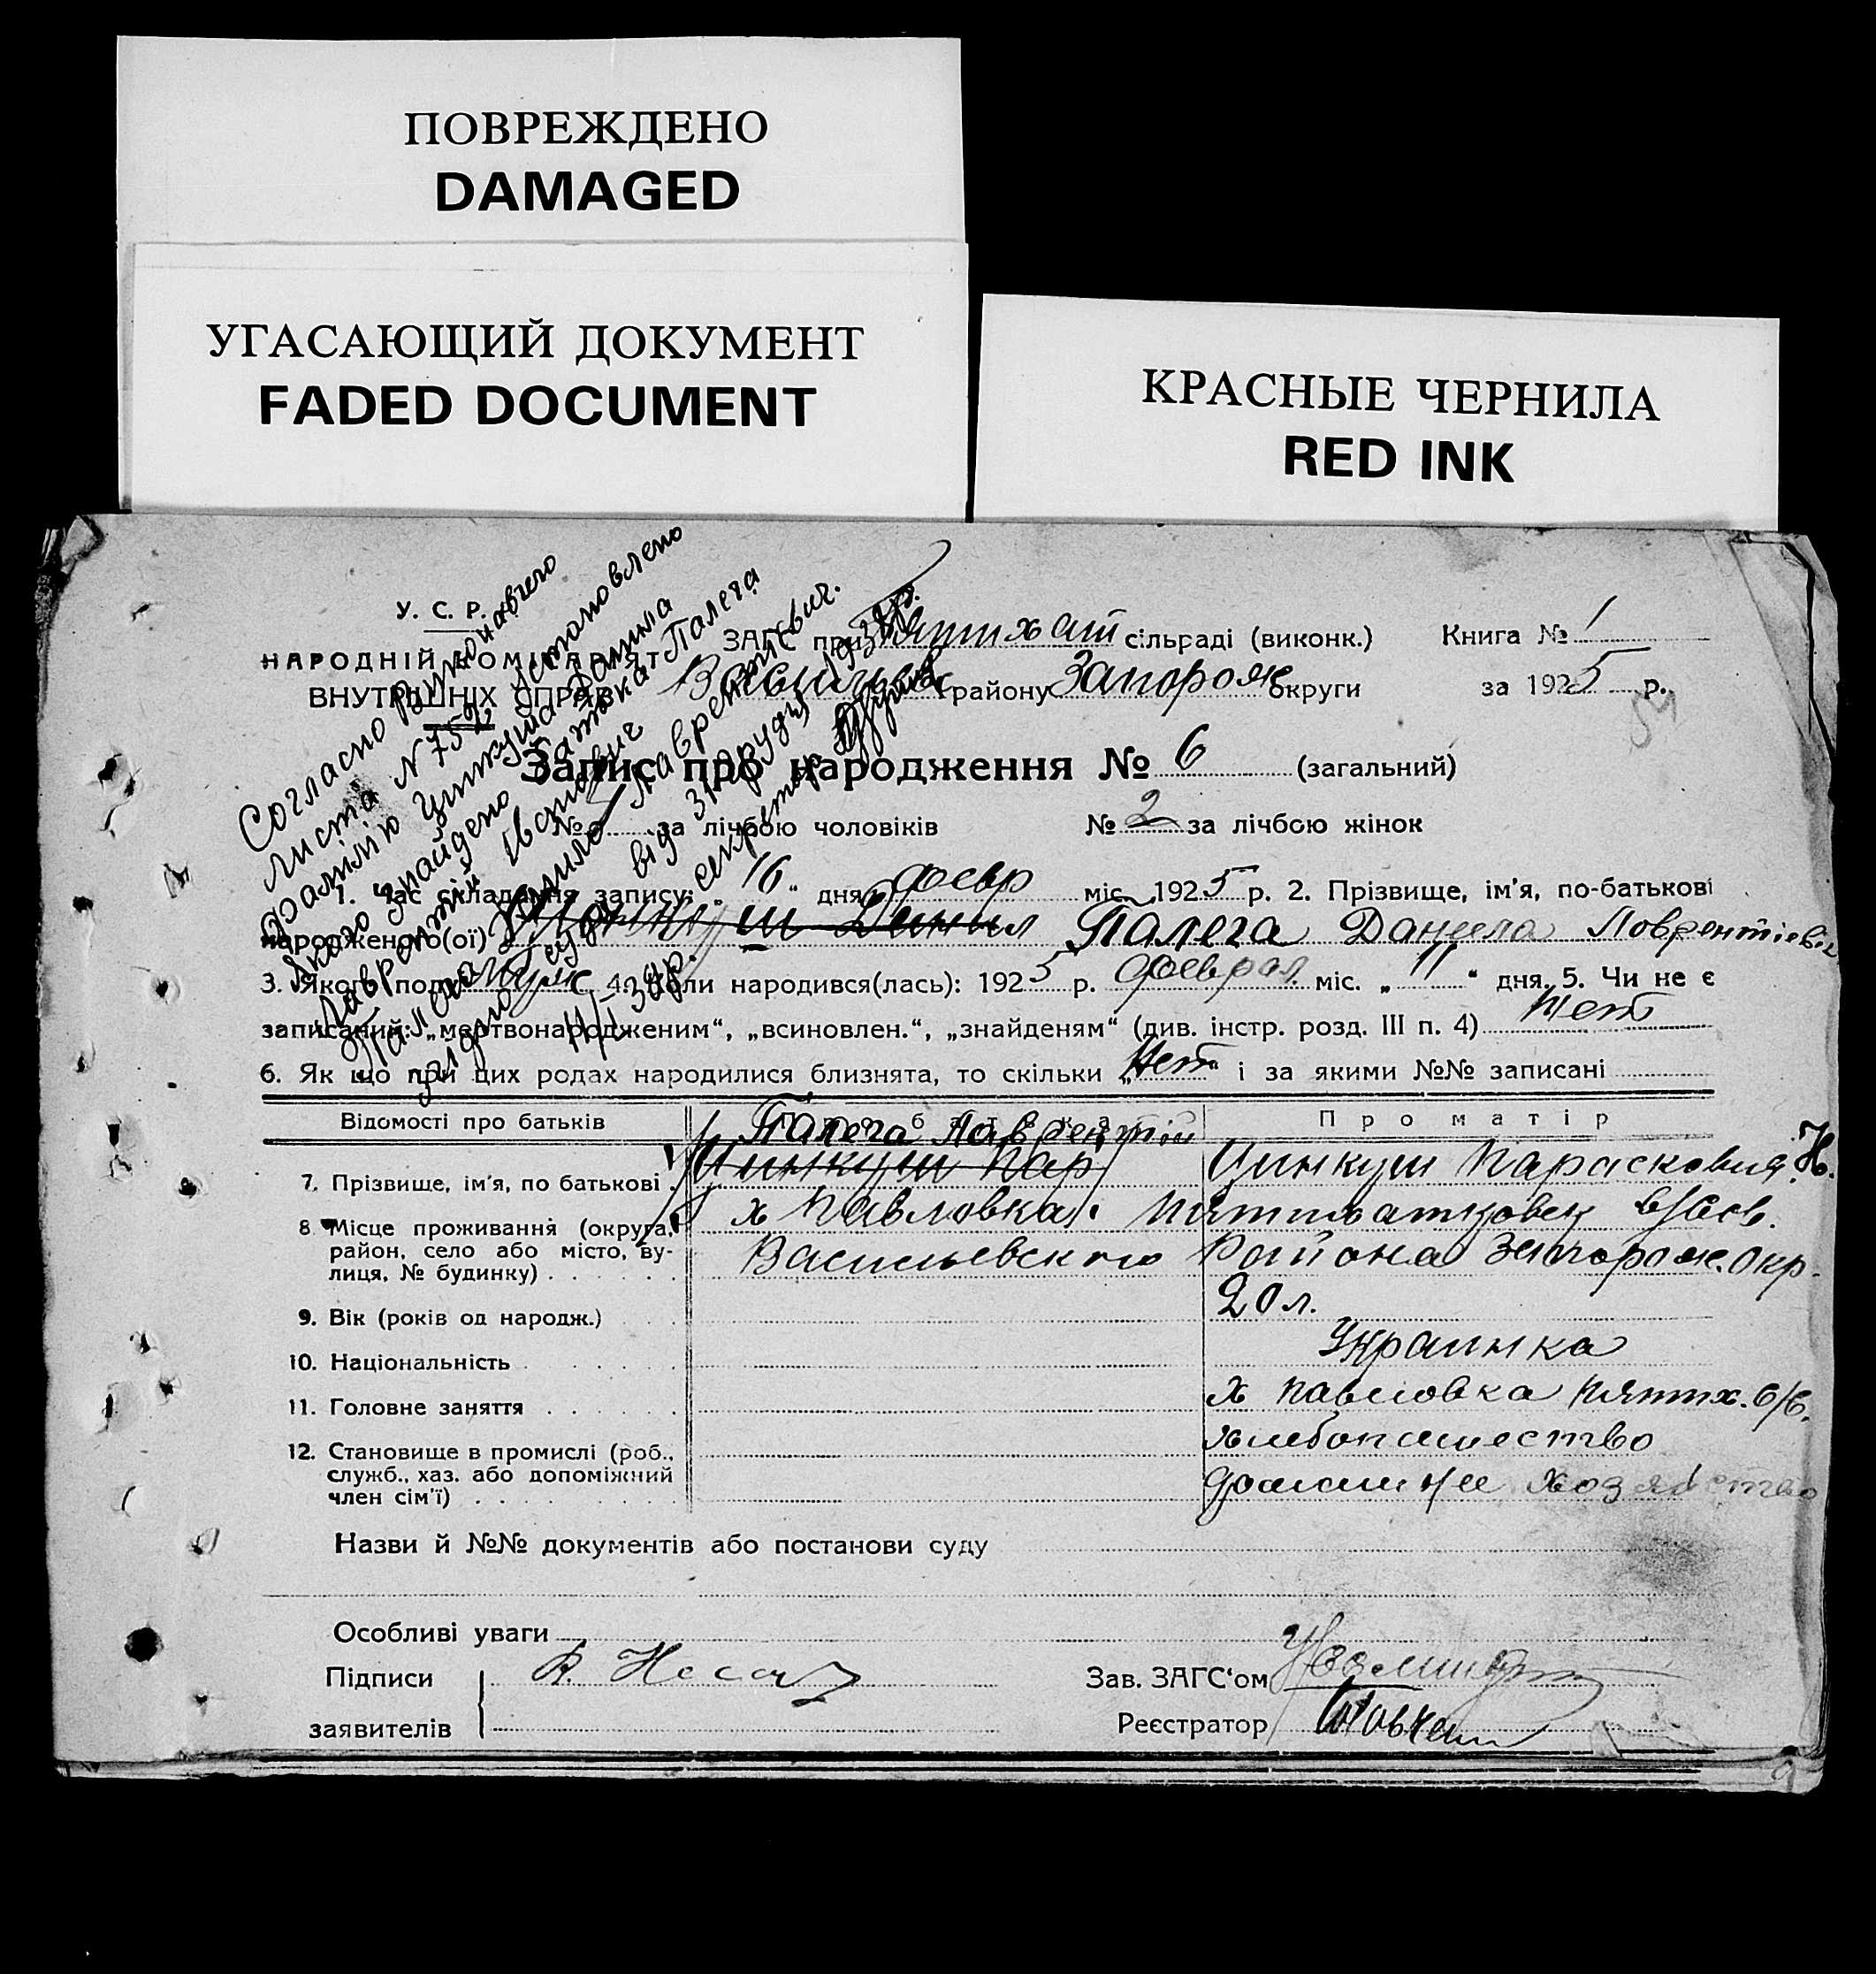 ПОВРЕЖДЕНО
DAMAGED
УГАСАЮЩИЙ ДОКУМЕНТ
FADED DOCUMENT
КРАСНЫЕ ЧЕРНИЛА
RED INK
У. С. Р.
НАРОДНІЙ КОМІСАРІЯТ
ВНУТРІШНІХ СПРАВ
ЗАГС при Пятихат сільраді (виконк.) Книга № 1
району Запорож округи за 1925 р.
54
Запис про народження № 6 (загальний)
№ 4 за лічбою чоловіків № 2 за лічбою жінок
Согласно Виконавчего
листа N 752 установлено
фамілію Цинкуша Данила
якого знайдено батька Палега
Лаврентій
Палега Данило Лаврентієвич.
згідно Суда від
секретар
1. Час складання запису: „16“ дня февр міс. 1925 р. 2. Прізвище, ім'я, по-батькові
народженого(ої) Цинкуш Данил Палега Данеела Ловрентіевич
3. Якого полу муж 4. Коли народився(лась): 1925 р. феврал. міс. „11“ дня. 5. Чи не є
записаний: „мертвонародженим“, „всиновлен.“, „знайденям“ (див. інстр. розд. III п. 4) Нет
6. Як що при цих родах народилися близнята, то скільки „Нет“ і за якими №№ записані
Відомості про батьків Про батька Про матір
Палега Лаврентій
7. Прізвище, ім'я, по батькові Цинкуш Пар Цинкуш Парасковия Н.
8. Місце проживання (округа, х Павловка
район, село або місто, ву- Васильевского Района Запорож. Окр.
лиця, № будинку)
9. Вік (років од народж.) 20 л.
10. Національність Украинка
11. Головне заняття х Павловка Пятих. с/с.
12. Становище в промислі (роб., хлебопашество
служб., хаз. або допоміжний
член сім'ї) домашнее хозяйство
Назви й №№ документів або постанови суду
Особливі уваги
Підписи Зав. ЗАГС'ом
заявителів Реєстратор